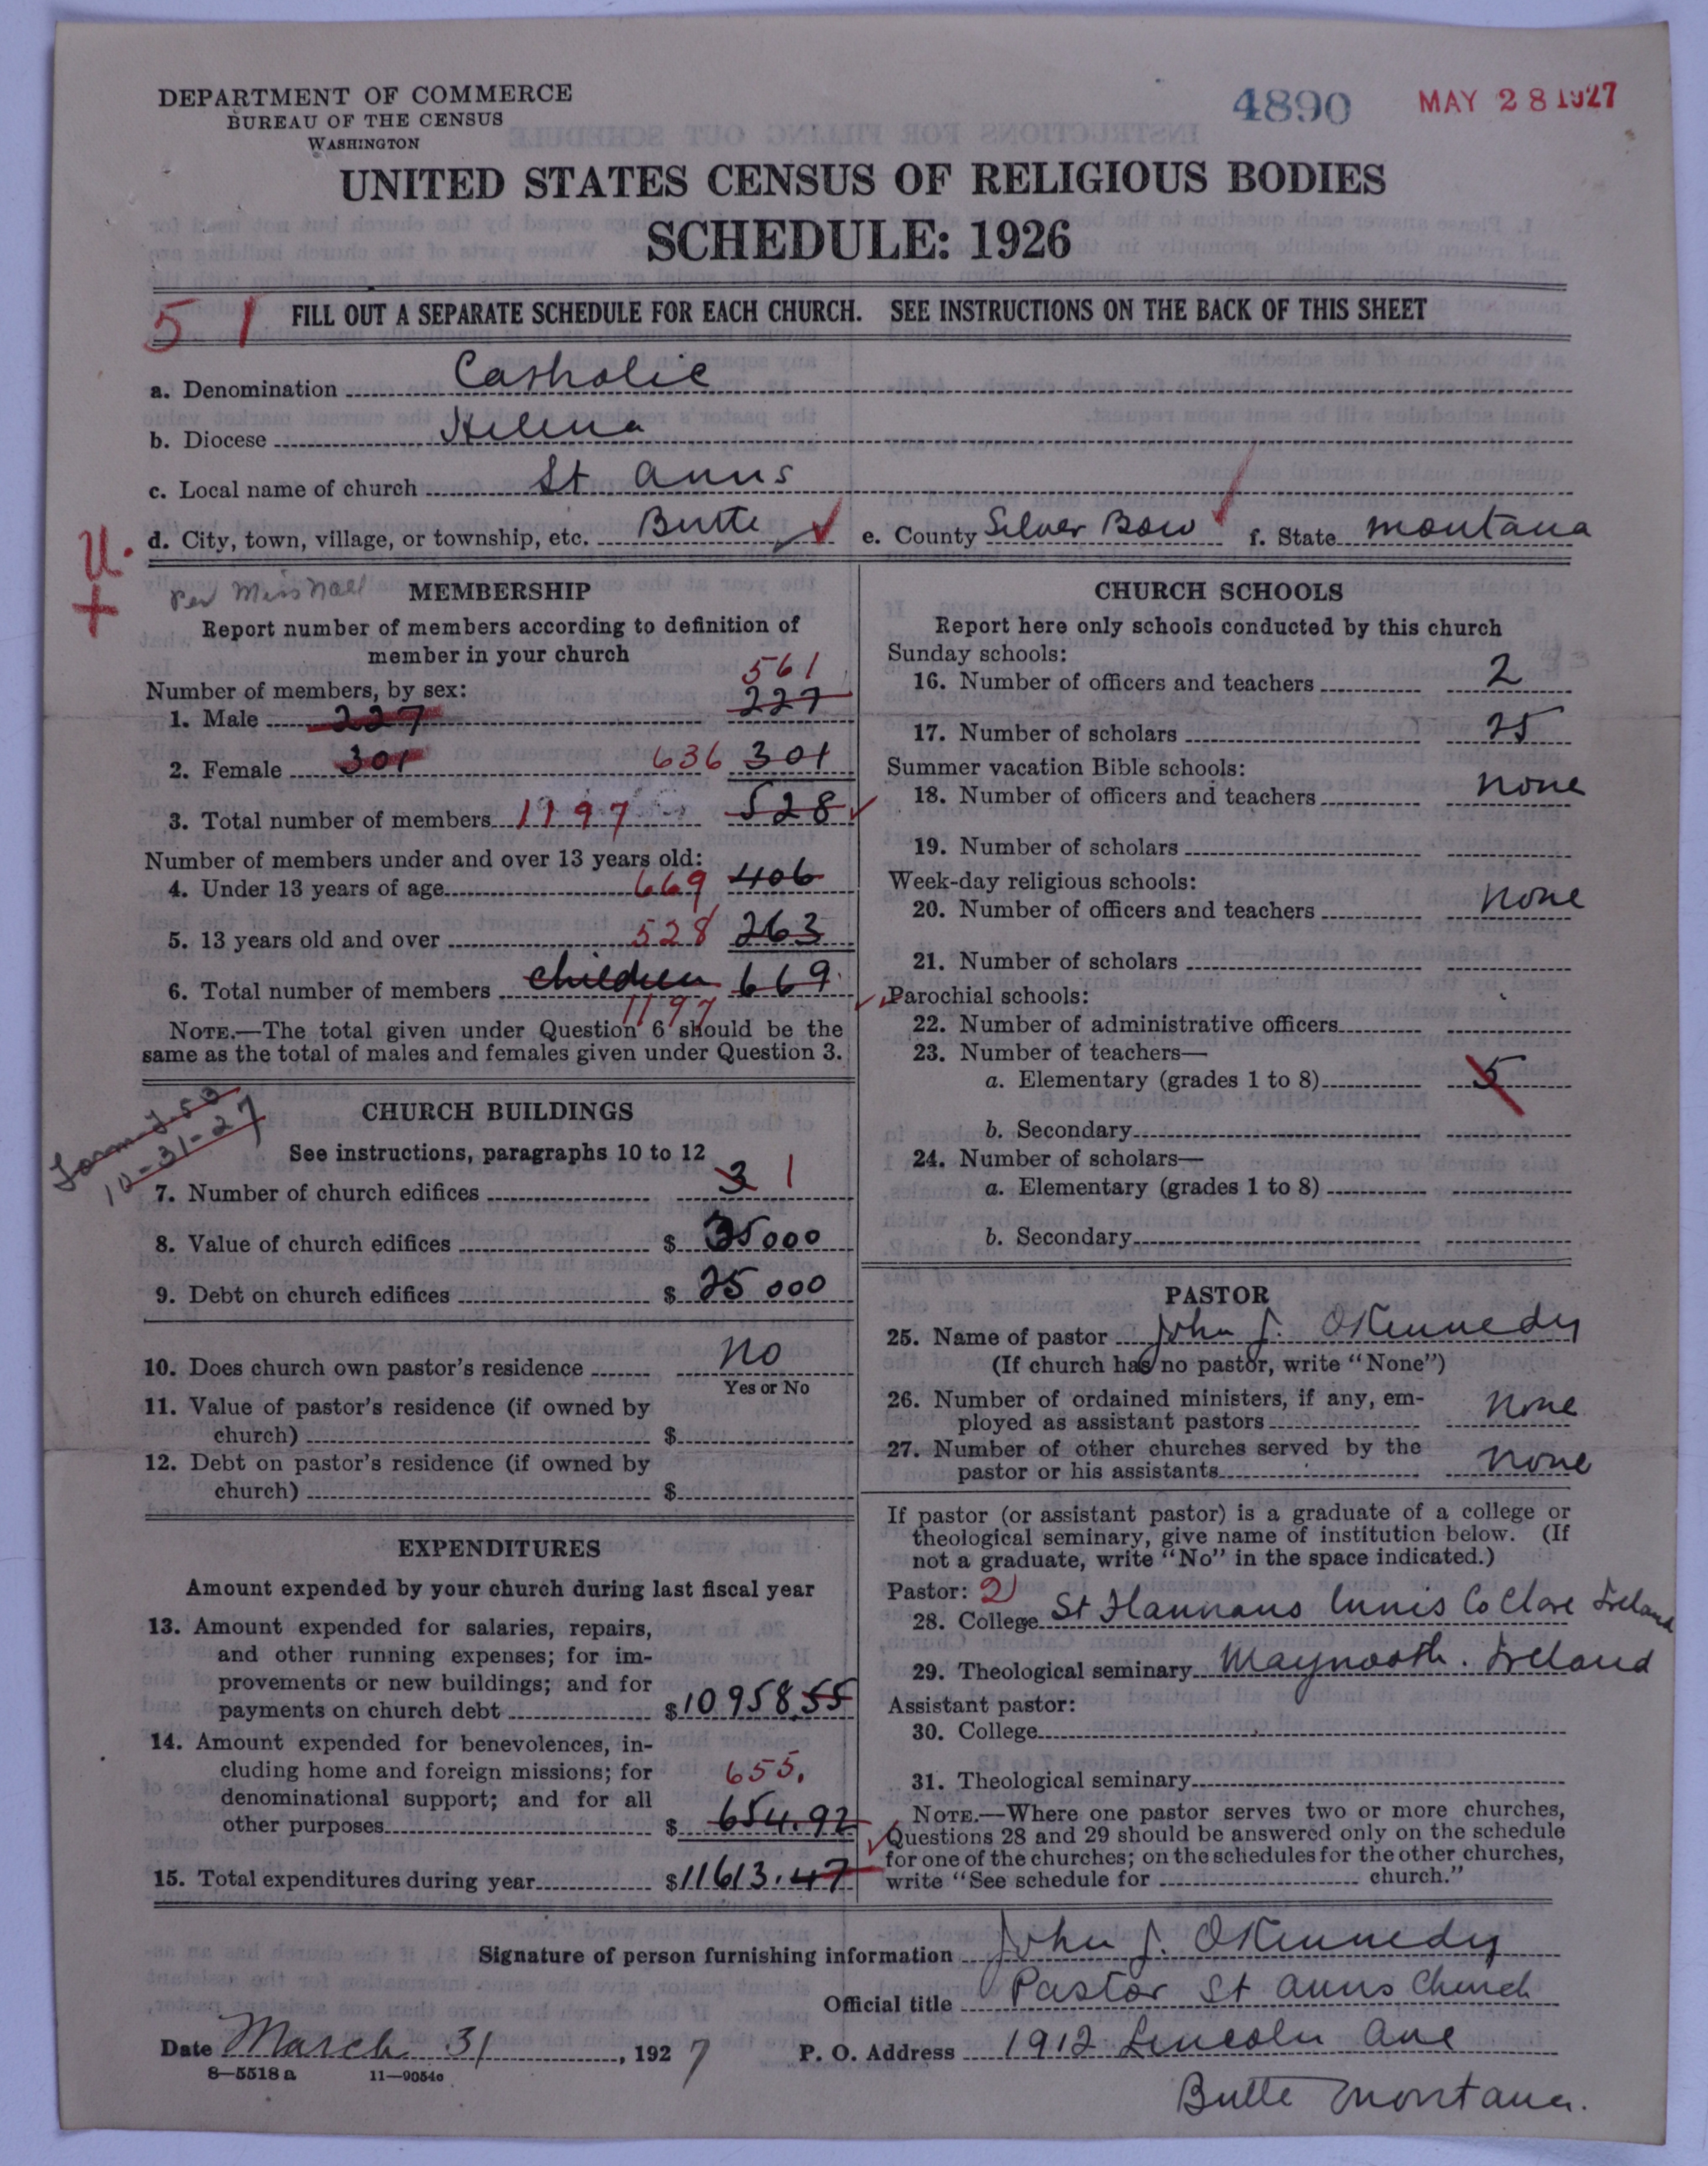 DEPARTMENT OF COMMERCE
BUREAU OF THE CENSUS
WASHINGTON
4890 MAY 28 1927
UNITED STATES CENSUS OF RELIGIOUS BODIES
SCHEDULE: 1926
51 FILL OUT A SEPARATE SCHEDULE FOR EACH CHURCH. SEE INSTRUCTIONS ON THE BACK OF THIS SHEET
a. Denomination Catholic
b. Diocese Helena
c. Local name of church St Anns
d. City, town, village, or township, etc. Butte e. County Silver Bow f. State Montana
U.
+
per Miss Nall MEMBERSHIP
Report number of members according to definition of
member in your church
Number of members, by sex:
561
1. Male 227 227
2. Female 301 636 301
3. Total number of members 1197 528
Number of members under and over 13 years old:
4. Under 13 years of age 669 406
5. 13 years old and over 528 263
6. Total number of members children 669
1197
NOTE.—The total given under Question 6 should be the
same as the total of males and females given under Question 3.
Form 753
10-31-27
CHURCH BUILDINGS
See instructions, paragraphs 10 to 12
7. Number of church edifices 3 1
8. Value of church edifices $ 35000
9. Debt on church edifices $ 25 000
10. Does church own pastor's residence No
Yes or No
11. Value of pastor's residence (if owned by
church) $
12. Debt on pastor's residence (if owned by
church) $
EXPENDITURES
Amount expended by your church during last fiscal year
13. Amount expended for salaries, repairs,
and other running expenses; for im-
provements or new buildings; and for
payments on church debt $10958.55
14. Amount expended for benevolences, in-
cluding home and foreign missions; for 655.
denominational support; and for all
other purposes $ 654.92
15. Total expenditures during year $11613.47
CHURCH SCHOOLS
Report here only schools conducted by this church
Sunday schools:
16. Number of officers and teachers 2
17. Number of scholars 25
Summer vacation Bible schools:
18. Number of officers and teachers none
19. Number of scholars
Week-day religious schools:
20. Number of officers and teachers none
21. Number of scholars
Parochial schools:
22. Number of administrative officers
23. Number of teachers—
a. Elementary (grades 1 to 8) 5
b. Secondary
24. Number of scholars—
a. Elementary (grades 1 to 8)
b. Secondary
PASTOR
25. Name of pastor John J. OKennedy
(If church has no pastor, write "None")
26. Number of ordained ministers, if any, em-
ployed as assistant pastors none
27. Number of other churches served by the
pastor or his assistants none
If pastor (or assistant pastor) is a graduate of a college or
theological seminary, give name of institution below. (If
not a graduate, write "No" in the space indicated.)
Pastor: 2
28. College St Flannans Ennis Co Clare Ireland
29. Theological seminary Maynooth. Ireland
Assistant pastor:
30. College
31. Theological seminary
NOTE.—Where one pastor serves two or more churches,
Questions 28 and 29 should be answered only on the schedule
for one of the churches; on the schedules for the other churches,
write "See schedule for church."
Signature of person furnishing information John J. OKennedy
Official title Pastor St Anns Church
Date March 31, 1927 P. O. Address 1912 Lincoln Ave
8—5518a 11—9054c
Butte Montana.